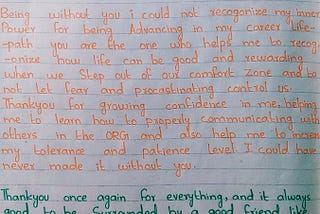 Being without you i could not recoganize my inner
Power for being Advancing in my career life-
-path you are the one who helps me to recog-
-onize how life can be good and rewarding
when we Step out of our comfort zone and to
not let fear and procastinating control us.
Thankyou for growing confidence in me, helping
me to learn how to properly communicating with
others in the ORG! and also help me to increas
my tolerance and patience level. I could have
never made it without you.
Thankyou once again for everything, and it always
good to be Surrounded by a good friend like